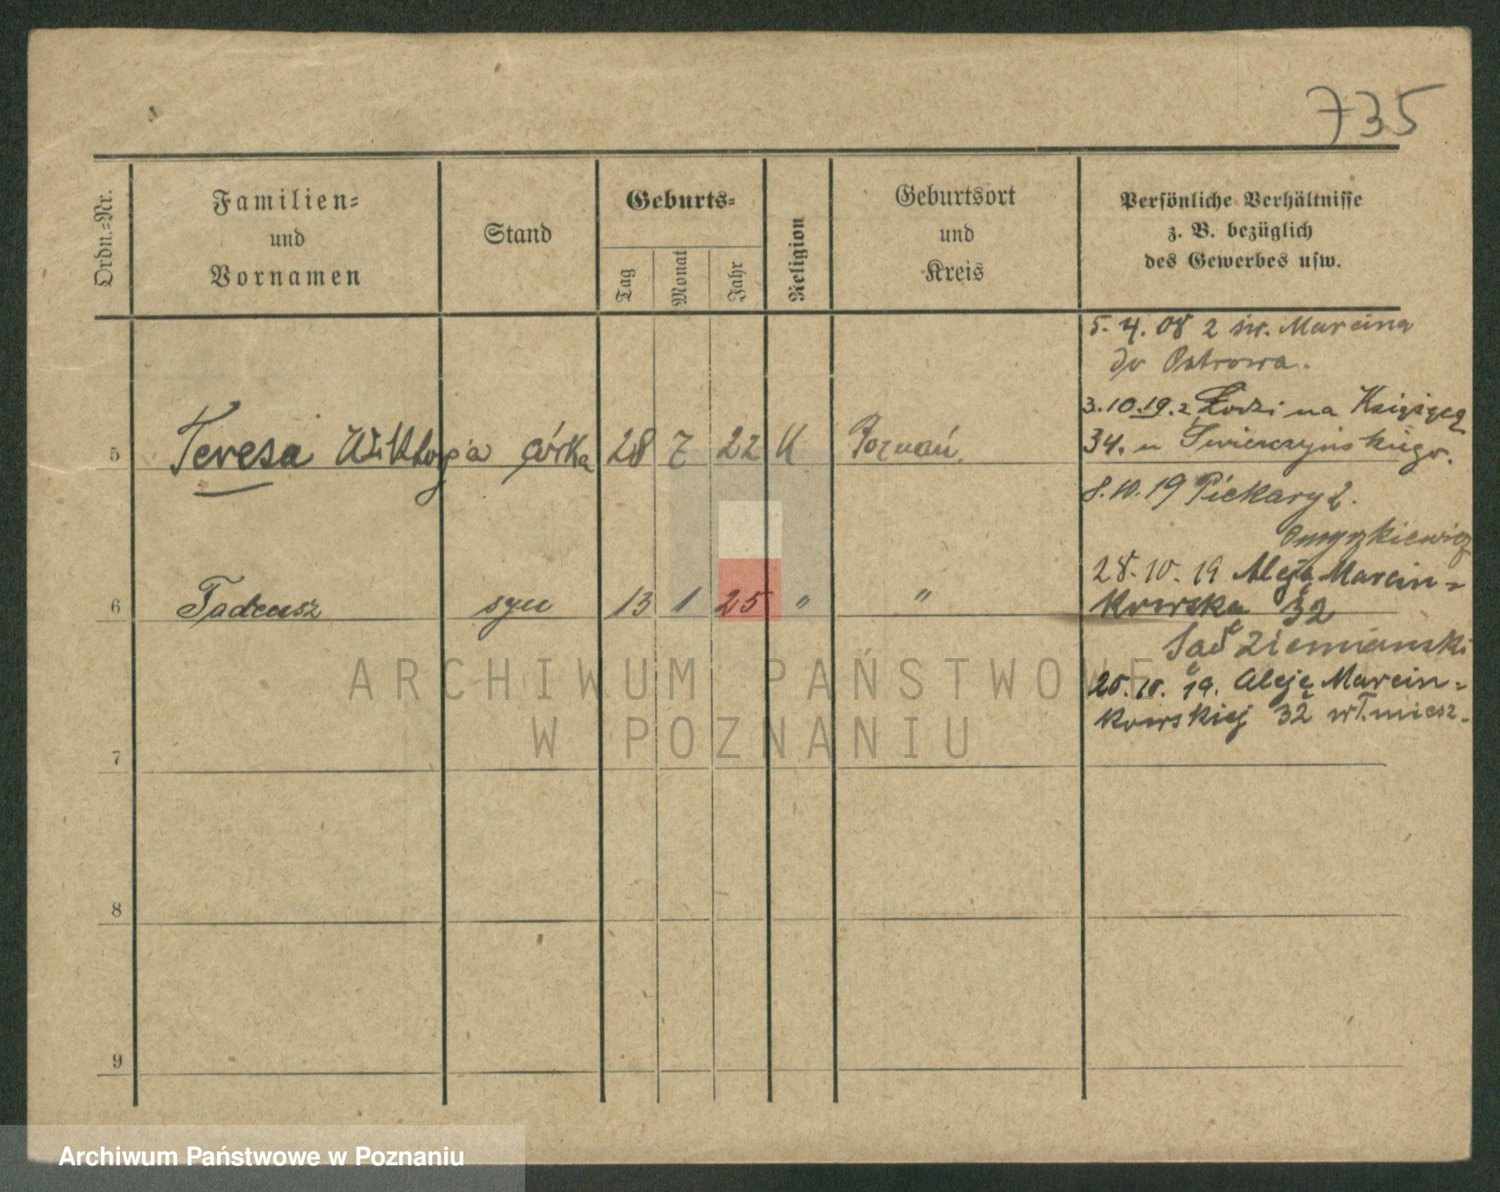 735
Ordn.-Nr.
Familien-
und
Vornamen
Stand
Geburts-
Tag
Monat
Jahr
Religion
Geburtsort
und
Kreis
Persönliche Verhältnisse
z. B. bezüglich
des Gewerbes usw.
5. 4. 08 z św. Marcina
do Ostrowa.
3.10.19. z Łodzi na Książęcą
34. u
5 Teresa Wiktorja córka 28 7 22 K Poznań.
8.10.19 Piekary 2.
28.10.19 Aleja Marcin-
kowska 32
6 Tadeusz syn 13 1 25 " "
Ziemianski
20.10.19. Aleję Marcin-
kowskiej 32 wł. miesz.
ARCHIWUM PAŃSTWOWE
W POZNANIU
7
8
9
Archiwum Państwowe w Poznaniu